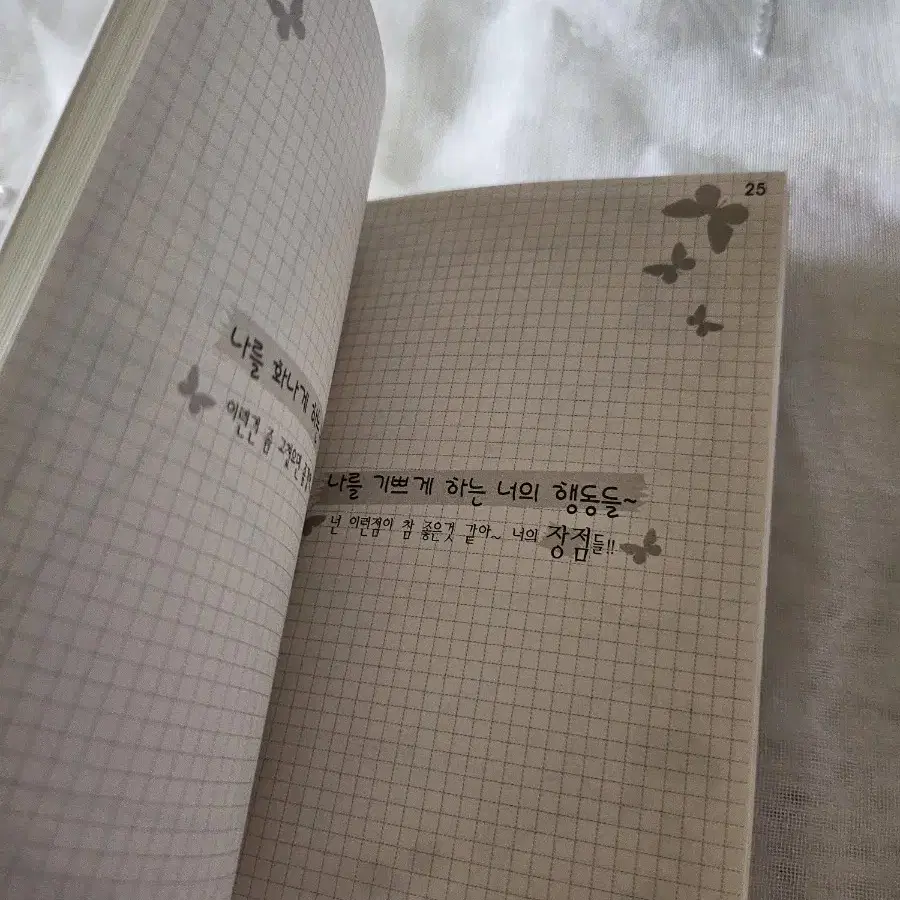 나를 화나게 하는
이런건 좀 그렇으면
25
나를 기쁘게 하는 너의 행동들~
넌 이런점이 참 좋은것 같아~ 너의 장점들!!